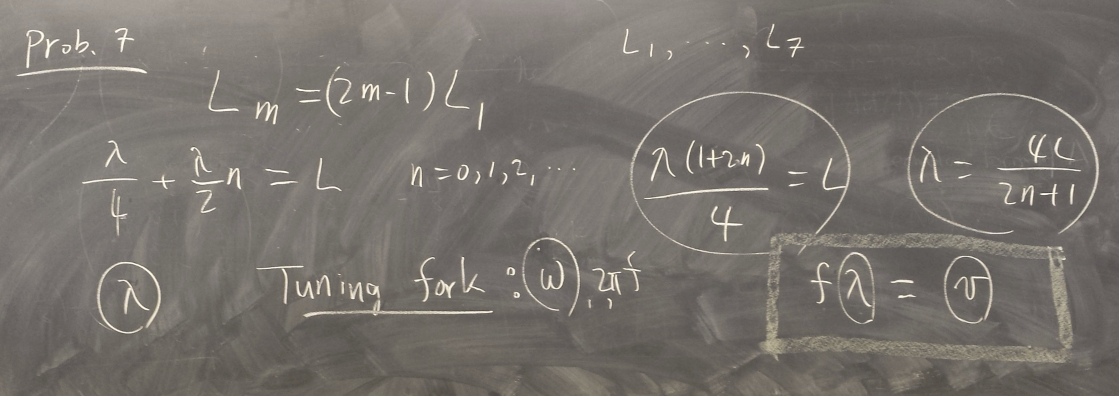 Prob. 7
L₁, ..., L₇
Lₘ = (2m-1) L₁
λ/4 + λ/2 n = L   n = 0, 1, 2, ...   λ(1+2n)/4 = L   λ = 4L/(2n+1)
λ   Tuning fork : ω, 2πf   fλ = v